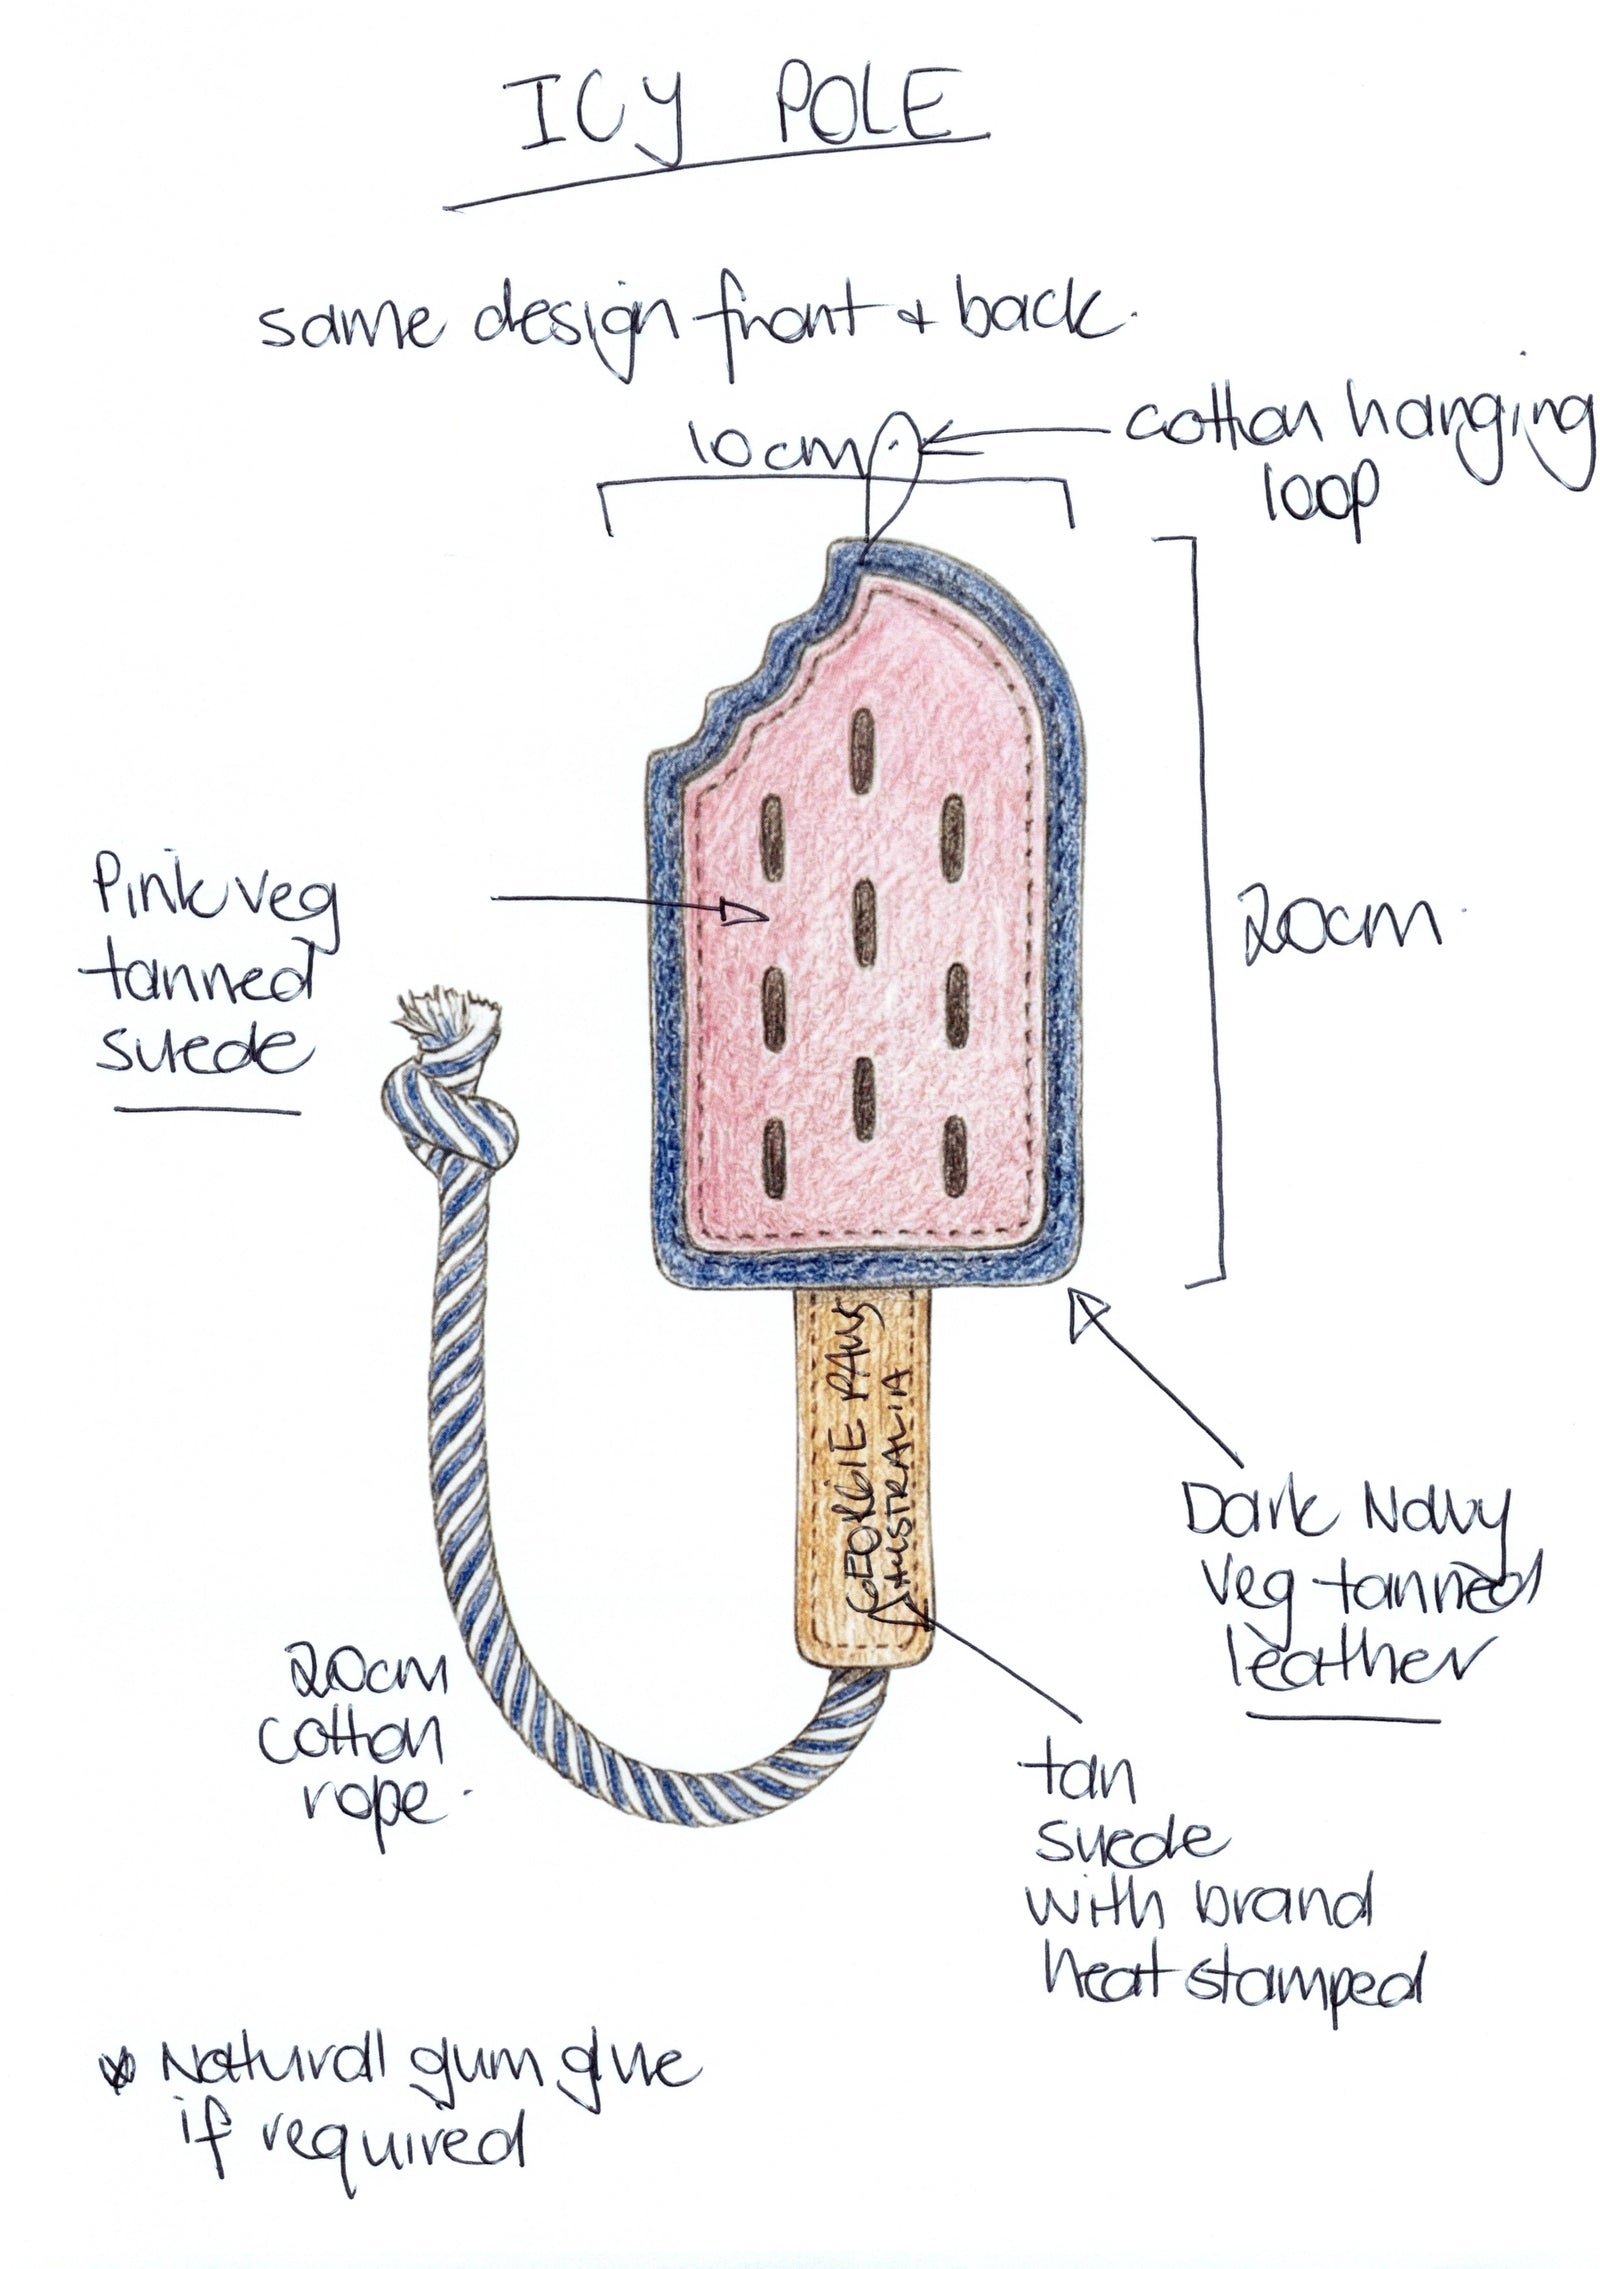 ICY POLE
same design front + back.
10cm.
cotton hanging
loop
Pink veg
tanned
suede
20cm.
GEORGIE PAWS
AUSTRALIA
Dark Navy
veg tanned
leather
20cm
cotton
rope.
tan
suede
with brand
heat stamped
* Natural gum glue
if required